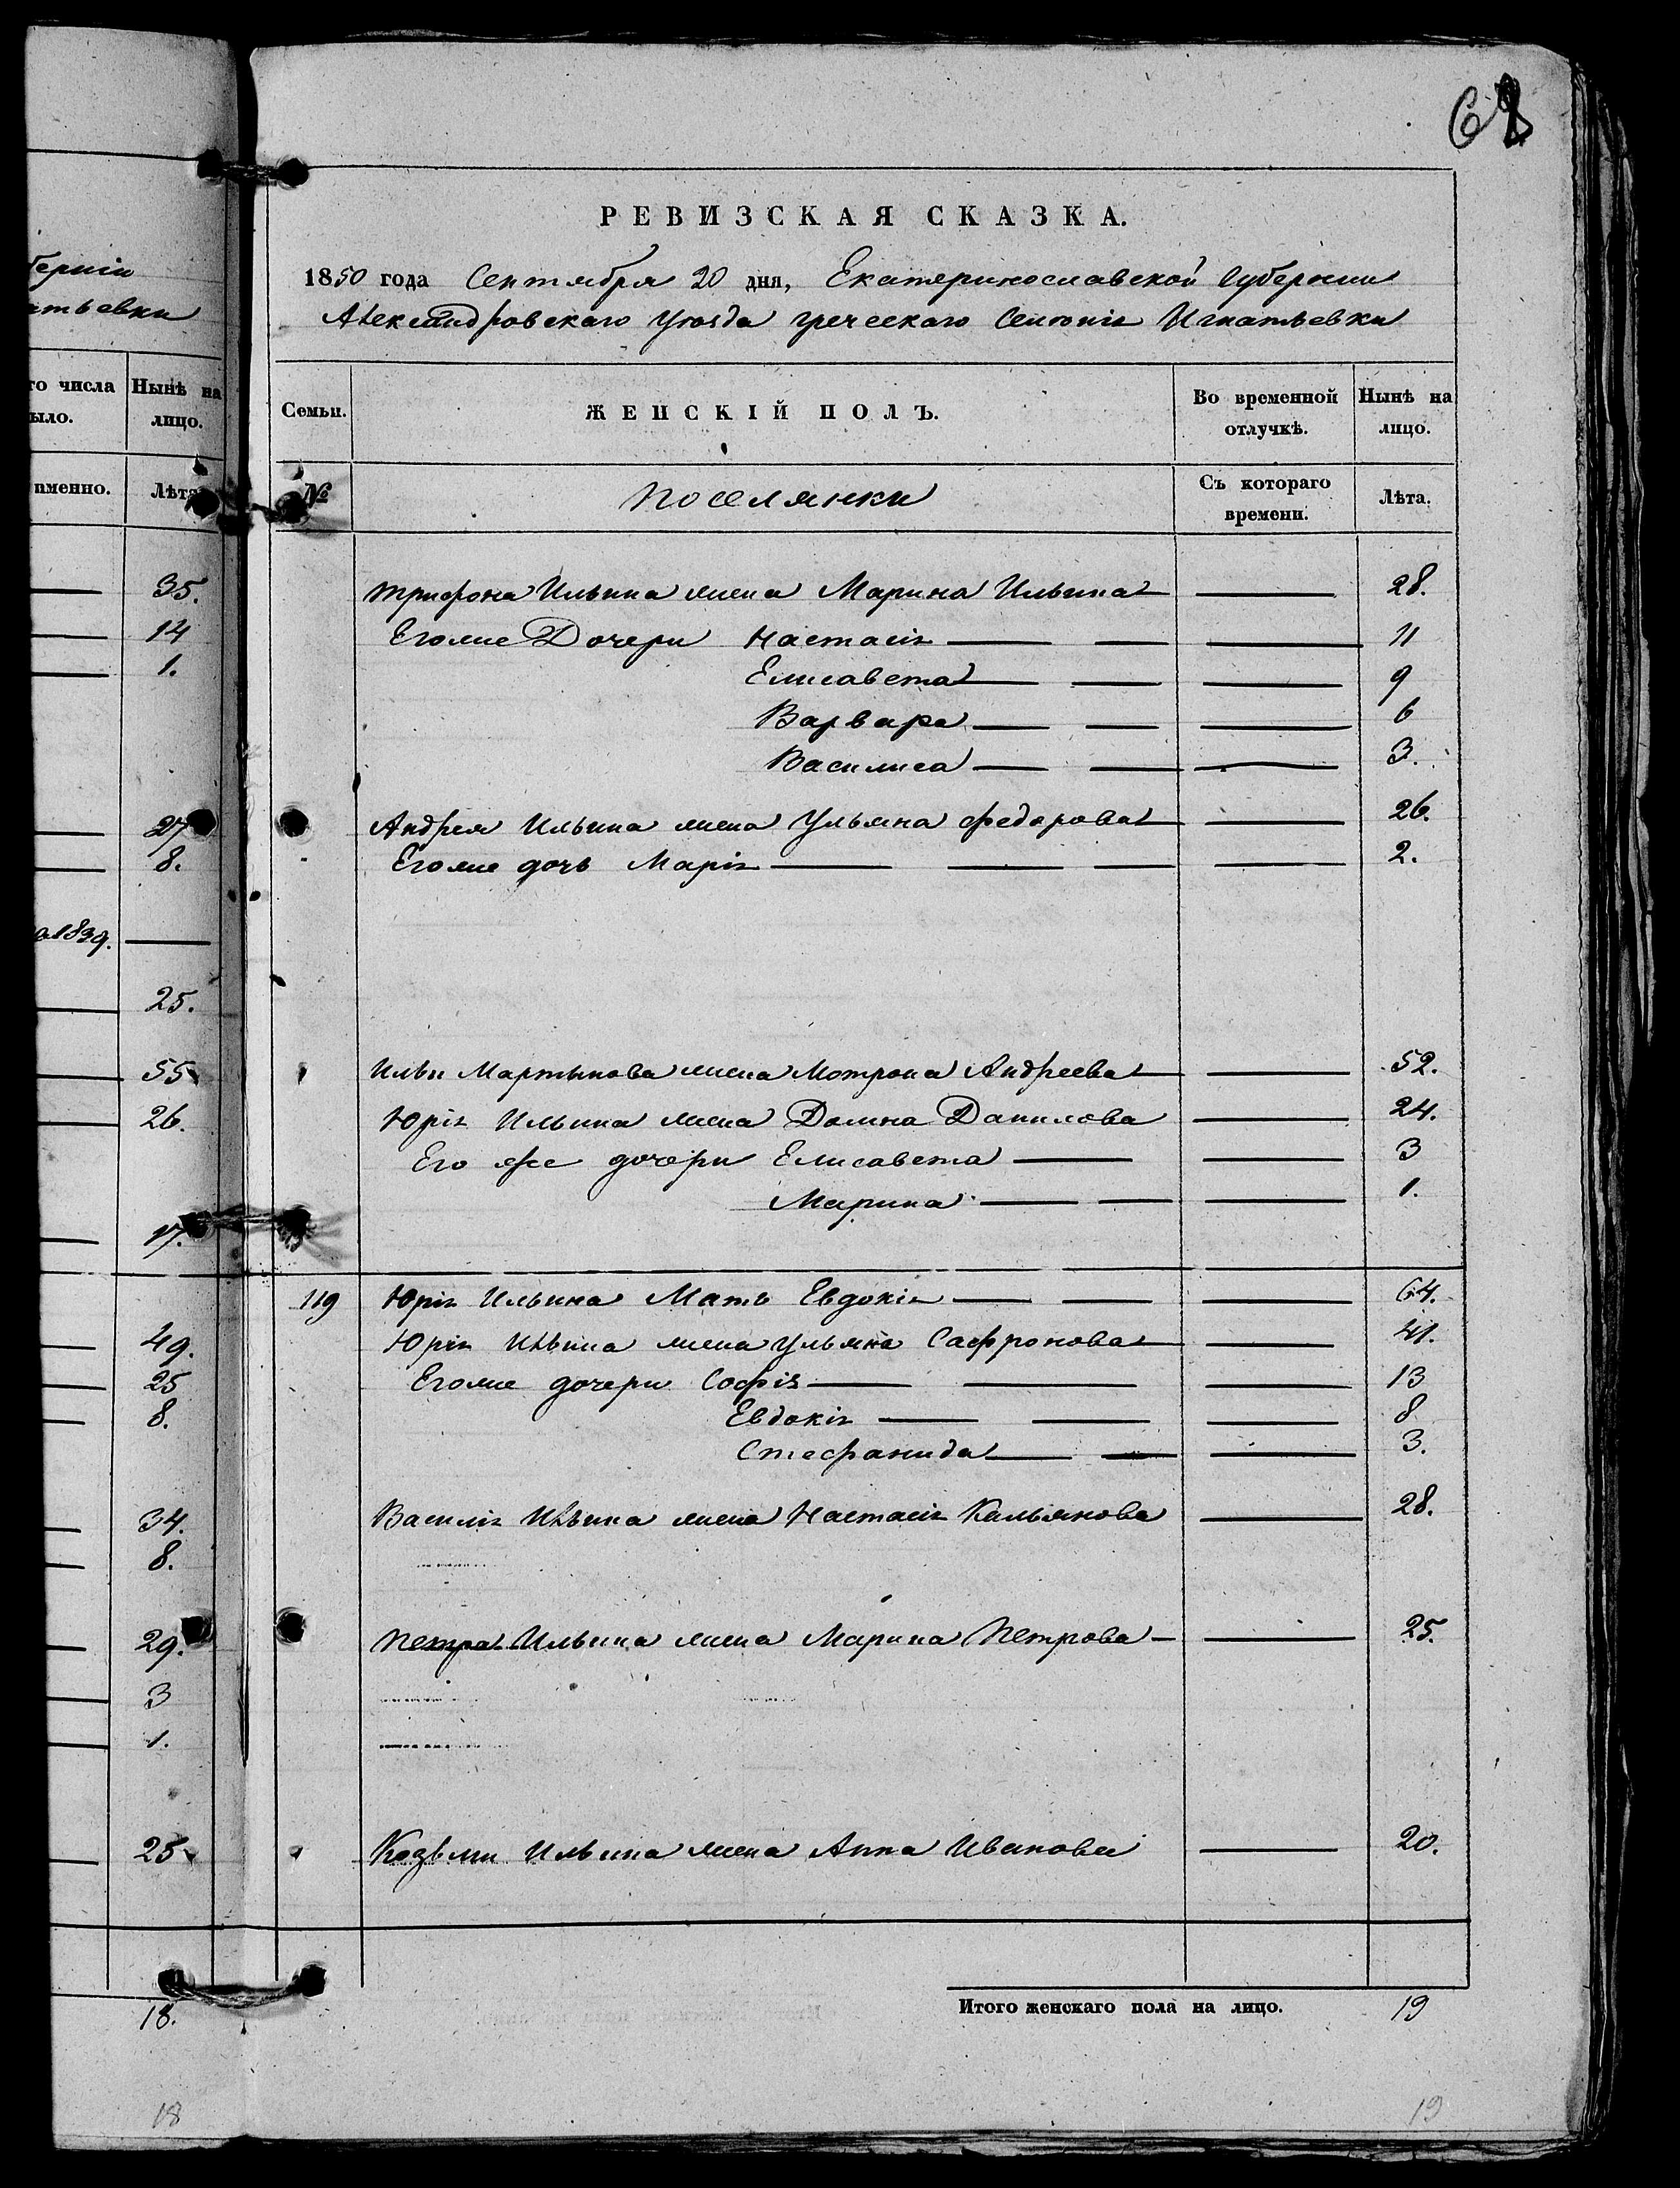 68
РЕВИЗСКАЯ СКАЗКА.
1850 года Сентября 20 дня, Екатеринославской Губернии
Александровскаго Уѣзда греческаго Селенія Игнатьевки
Семьи. ЖЕНСКІЙ ПОЛЪ. Во временной отлучкѣ. Нынѣ на лицо.
№ Поселянки Съ котораго времени. Лѣта.
Трифона Ильина жена Марина Ильина — 28.
Его же Дочери Настасія — 11
Елисавета — 9
Варвара — 6
Василиса — 3.
Андрея Ильина жена Ульяна Федорова — 26.
Его же дочь Марія — 2.
Ильи Мартынова жена Мотрона Андреева — 52.
Юрія Ильина жена Домна Данилова — 24.
Его же дочери Елисавета — 3
Марина — 1.
119 Юрія Ильина Мать Евдокія — 64.
Юрія Ильина жена Ульяна Сафронова — 41.
Его же дочери Софія — 13
Евдокія — 8
Стефанида — 3.
Василія Ильина жена Настасія Кальянова — 28.
Петра Ильина жена Марина Петрова — 25.
Козьми Ильина жена Анна Иванова — 20.
Итого женскаго пола на лицо. 19
19
берніи
атьевки
го числа Нынѣ на
ыло. лицо.
именно. Лѣта
35.
14
1.
27
8.
1839. —
25.
55
26.
17.
49.
25
8.
34.
8.
29.
3
1.
25
18.
18